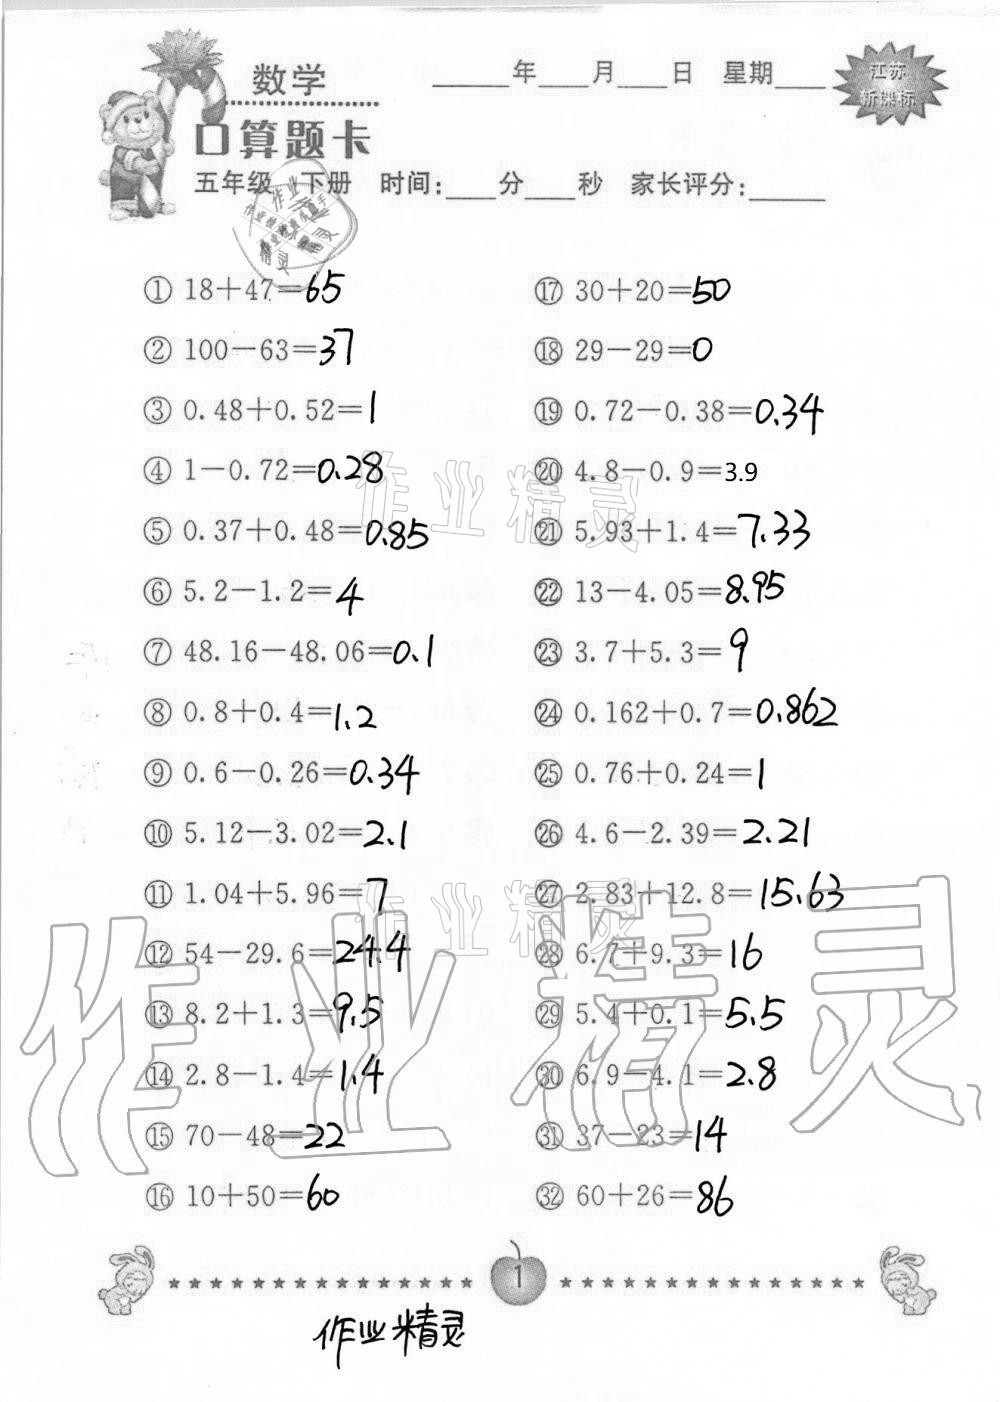 数学
____年____月____日 星期____
江苏
新课标
口算题卡
五年级 下册 时间:____分____秒 家长评分:____
① 18+47=65
⑰ 30+20=50
② 100-63=37
⑱ 29-29=0
③ 0.48+0.52=1
⑲ 0.72-0.38=0.34
④ 1-0.72=0.28
⑳ 4.8-0.9=3.9
⑤ 0.37+0.48=0.85
㉑ 5.93+1.4=7.33
⑥ 5.2-1.2=4
㉒ 13-4.05=8.95
⑦ 48.16-48.06=0.1
㉓ 3.7+5.3=9
⑧ 0.8+0.4=1.2
㉔ 0.162+0.7=0.862
⑨ 0.6-0.26=0.34
㉕ 0.76+0.24=1
⑩ 5.12-3.02=2.1
㉖ 4.6-2.39=2.21
⑪ 1.04+5.96=7
㉗ 2.83+12.8=15.63
⑫ 54-29.6=24.4
㉘ 6.7+9.3=16
⑬ 8.2+1.3=9.5
㉙ 5.4+0.1=5.5
⑭ 2.8-1.4=1.4
㉚ 6.9-4.1=2.8
⑮ 70-48=22
㉛ 37-23=14
⑯ 10+50=60
㉜ 60+26=86
作业精灵
作业精灵
作业精灵
1
作业精灵